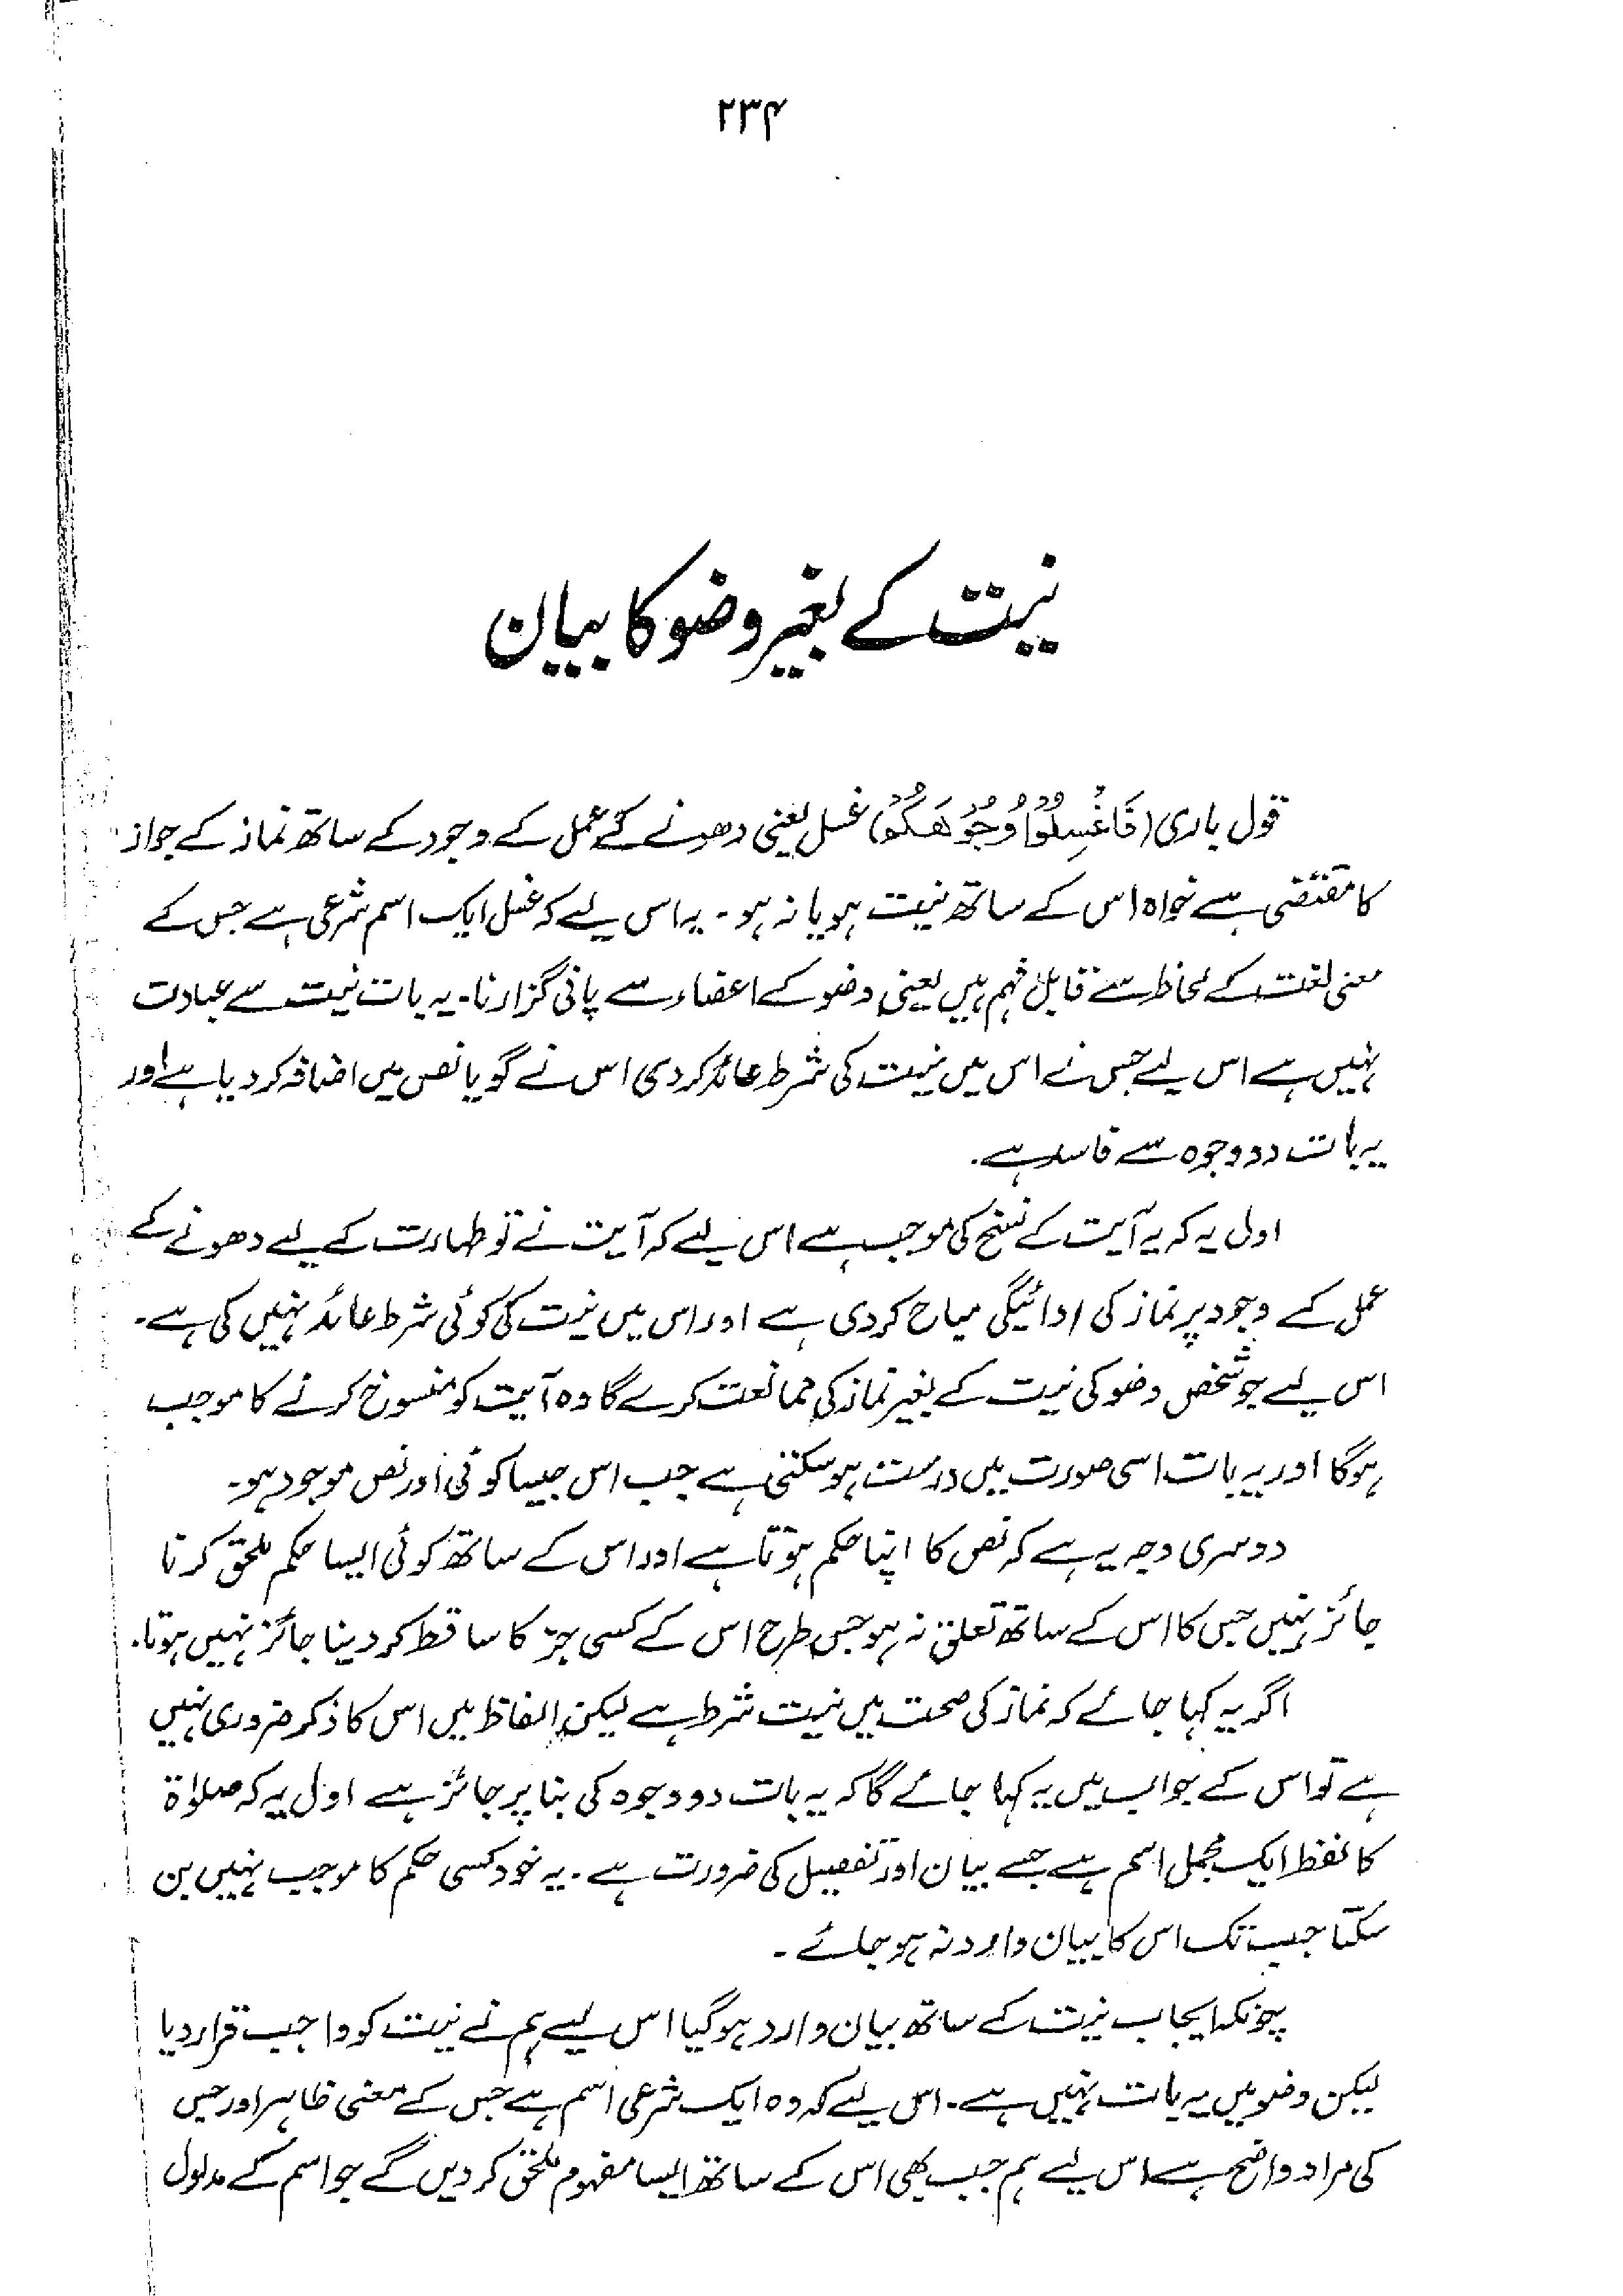 ۲۳۴
نیت کے بغیر وضو کا بیان
قول باری (فَاغْسِلُوْا وُجُوْهَكُمْ) غسل یعنی دھونے کے عمل کے وجود کے ساتھ نماز کے جواز
کا مقتضی ہے خواہ اس کے ساتھ نیت ہو یا نہ ہو۔ یہ اس لیے کہ غسل ایک اسم شرعی ہے جس کے
معنی لغت کے لحاظ سے قابل فہم ہیں یعنی وضو کے اعضاء سے پانی گزارنا۔ یہ بات نیت سے عبارت
نہیں ہے اس لیے جس نے اس میں نیت کی شرط عائد کردی اس نے گویا نص میں اضافہ کر دیا ہے اور
یہ بات دو وجوہ سے فاسد ہے۔
اول یہ کہ یہ آیت کے نسخ کی موجب ہے اس لیے کہ آیت نے تو طہارت کے لیے دھونے کے
عمل کے وجود پر نماز کی ادائیگی مباح کردی ہے اور اس میں نیت کی کوئی شرط عائد نہیں کی ہے۔
اس لیے جو شخص وضو کی نیت کے بغیر نماز کی ممانعت کرے گا وہ آیت کو منسوخ کرنے کا موجب
ہوگا اور یہ بات اسی صورت میں درست ہو سکتی ہے جب اس جیسا کوئی اور نص موجود ہو۔
دوسری وجہ یہ ہے کہ نص کا اپنا حکم ہوتا ہے اور اس کے ساتھ کوئی ایسا حکم ملحق کرنا
جائز نہیں جس کا اس کے ساتھ تعلق نہ ہو جس طرح اس کے کسی جز کا ساقط کر دینا جائز نہیں ہوتا۔
اگر یہ کہا جائے کہ نماز کی صحت میں نیت شرط ہے لیکن الفاظ میں اس کا ذکر ضروری نہیں
ہے تو اس کے جواب میں یہ کہا جائے گا کہ یہ بات دو وجوہ کی بنا پر جائز ہے اول یہ کہ صلوٰۃ
کا لفظ ایک مجمل اسم ہے جسے بیان اور تفصیل کی ضرورت ہے۔ یہ خود کسی حکم کا موجب نہیں بن
سکتا جب تک اس کا بیان وارد نہ ہو جائے۔
چونکہ ایجاب نیت کے ساتھ بیان وارد ہوگیا اس لیے ہم نے نیت کو واجب قرار دیا
لیکن وضو میں یہ بات نہیں ہے۔ اس لیے کہ وہ ایک شرعی اسم ہے جس کے معنی ظاہر اور جس
کی مراد واضح ہے اس لیے ہم جب بھی اس کے ساتھ ایسا مفہوم ملحق کردیں گے جو اسم کے مدلول